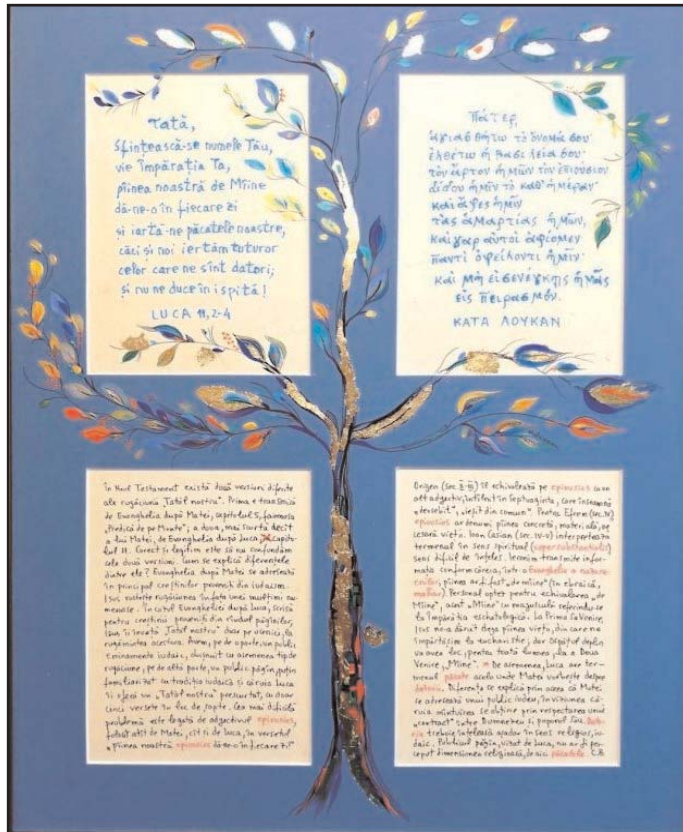 Tată,
sfințească-se numele Tău,
vie Împărăția Ta,
pîinea noastră de Mîine
dă-ne-o în fiecare zi
și iartă-ne păcatele noastre,
căci și noi iertăm tuturor
celor care ne sînt datori;
și nu ne duce în ispită!
LUCA 11, 2-4
Πάτερ,
ἁγιασθήτω τὸ ὄνομά σου·
ἐλθέτω ἡ βασιλεία σου·
τὸν ἄρτον ἡμῶν τὸν ἐπιούσιον
δίδου ἡμῖν τὸ καθ' ἡμέραν·
καὶ ἄφες ἡμῖν
τὰς ἁμαρτίας ἡμῶν,
καὶ γὰρ αὐτοὶ ἀφίομεν
παντὶ ὀφείλοντι ἡμῖν·
καὶ μὴ εἰσενέγκῃς ἡμᾶς
εἰς πειρασμόν.
ΚΑΤΑ ΛΟΥΚΑΝ
În Noul Testament există două versiuni diferite
ale rugăciunii „Tatăl nostru”. Prima e transmisă
de Evanghelia după Matei, capitolul 5, faimoasa
„Predică de pe Munte”; a doua, mai scurtă decît
a lui Matei, de Evanghelia după Luca, capito-
lul 11. Corect și legitim este să nu confundăm
cele două versiuni. Cum se explică diferențele
dintre ele? Evanghelia după Matei se adresează
în principal creștinilor proveniți din iudaism.
Isus rostește rugăciunea în fața unei mulțimi nu-
meroase. În cazul Evangheliei după Luca, scrisă
pentru creștinii proveniți din rîndul păgînilor,
Isus îi învață „Tatăl nostru” doar pe ucenici, la
rugămintea acestora. Avem, pe de o parte, un public
eminamente iudaic, obișnuit cu asemenea tip de
rugăciune, pe de altă parte, un public păgîn, puțin
familiarizat cu tradiția iudaică și căruia Luca
îi oferă un „Tatăl nostru” prescurtat, cu doar
cinci versete în loc de șapte. Cea mai dificilă
problemă este legată de adjectivul epiousios,
folosit atît de Matei, cît și de Luca, în versetul
„pîinea noastră epiousios dă-ne-o în fiecare zi”
Origen (sec. II-III) îl echivalează pe epiousios cu un
alt adjectiv, întîlnit în Septuaginta, care înseamnă
„deosebit”, „ieșit din comun”. Pentru Efrem (sec. IV)
epiousios ar denumi pîinea concretă, materială, ne-
cesară vieții. Ioan Casian (sec. IV-V) interpretează
termenul în sens spiritual (supersubstantialis)
sens dificil de înțeles. Ieronim transmite infor-
mația conform căreia, într-o Evanghelie a nazare-
enilor, pîinea ar fi fost „de mîine” (în ebraică,
mahar). Personal optez pentru echivalarea „de
Mîine”, acest „Mîine” cu majusculă referindu-se
la Împărăția eschatologică. La Prima Sa Venire,
Isus ne-a dăruit deja pîinea vieții, din care ne
împărtășim la euharistie, dar ospățul deplin
va avea loc, pentru toată lumea, la a Doua
Venire, „Mîine”. De asemenea, Luca are ter-
menul păcate acolo unde Matei vorbește despre
datorii. Diferența se explică prin aceea că Matei
se adresează unui public iudeu, în viziunea că-
ruia mîntuirea se obține prin respectarea unui
„contract” între Dumnezeu și poporul Său. Dato-
ria trebuie înțeleasă așadar în sens religios, iu-
daic. Publicul păgîn, vizat de Luca, nu ar fi per-
ceput dimensiunea religioasă, de aici păcatele. C.B.